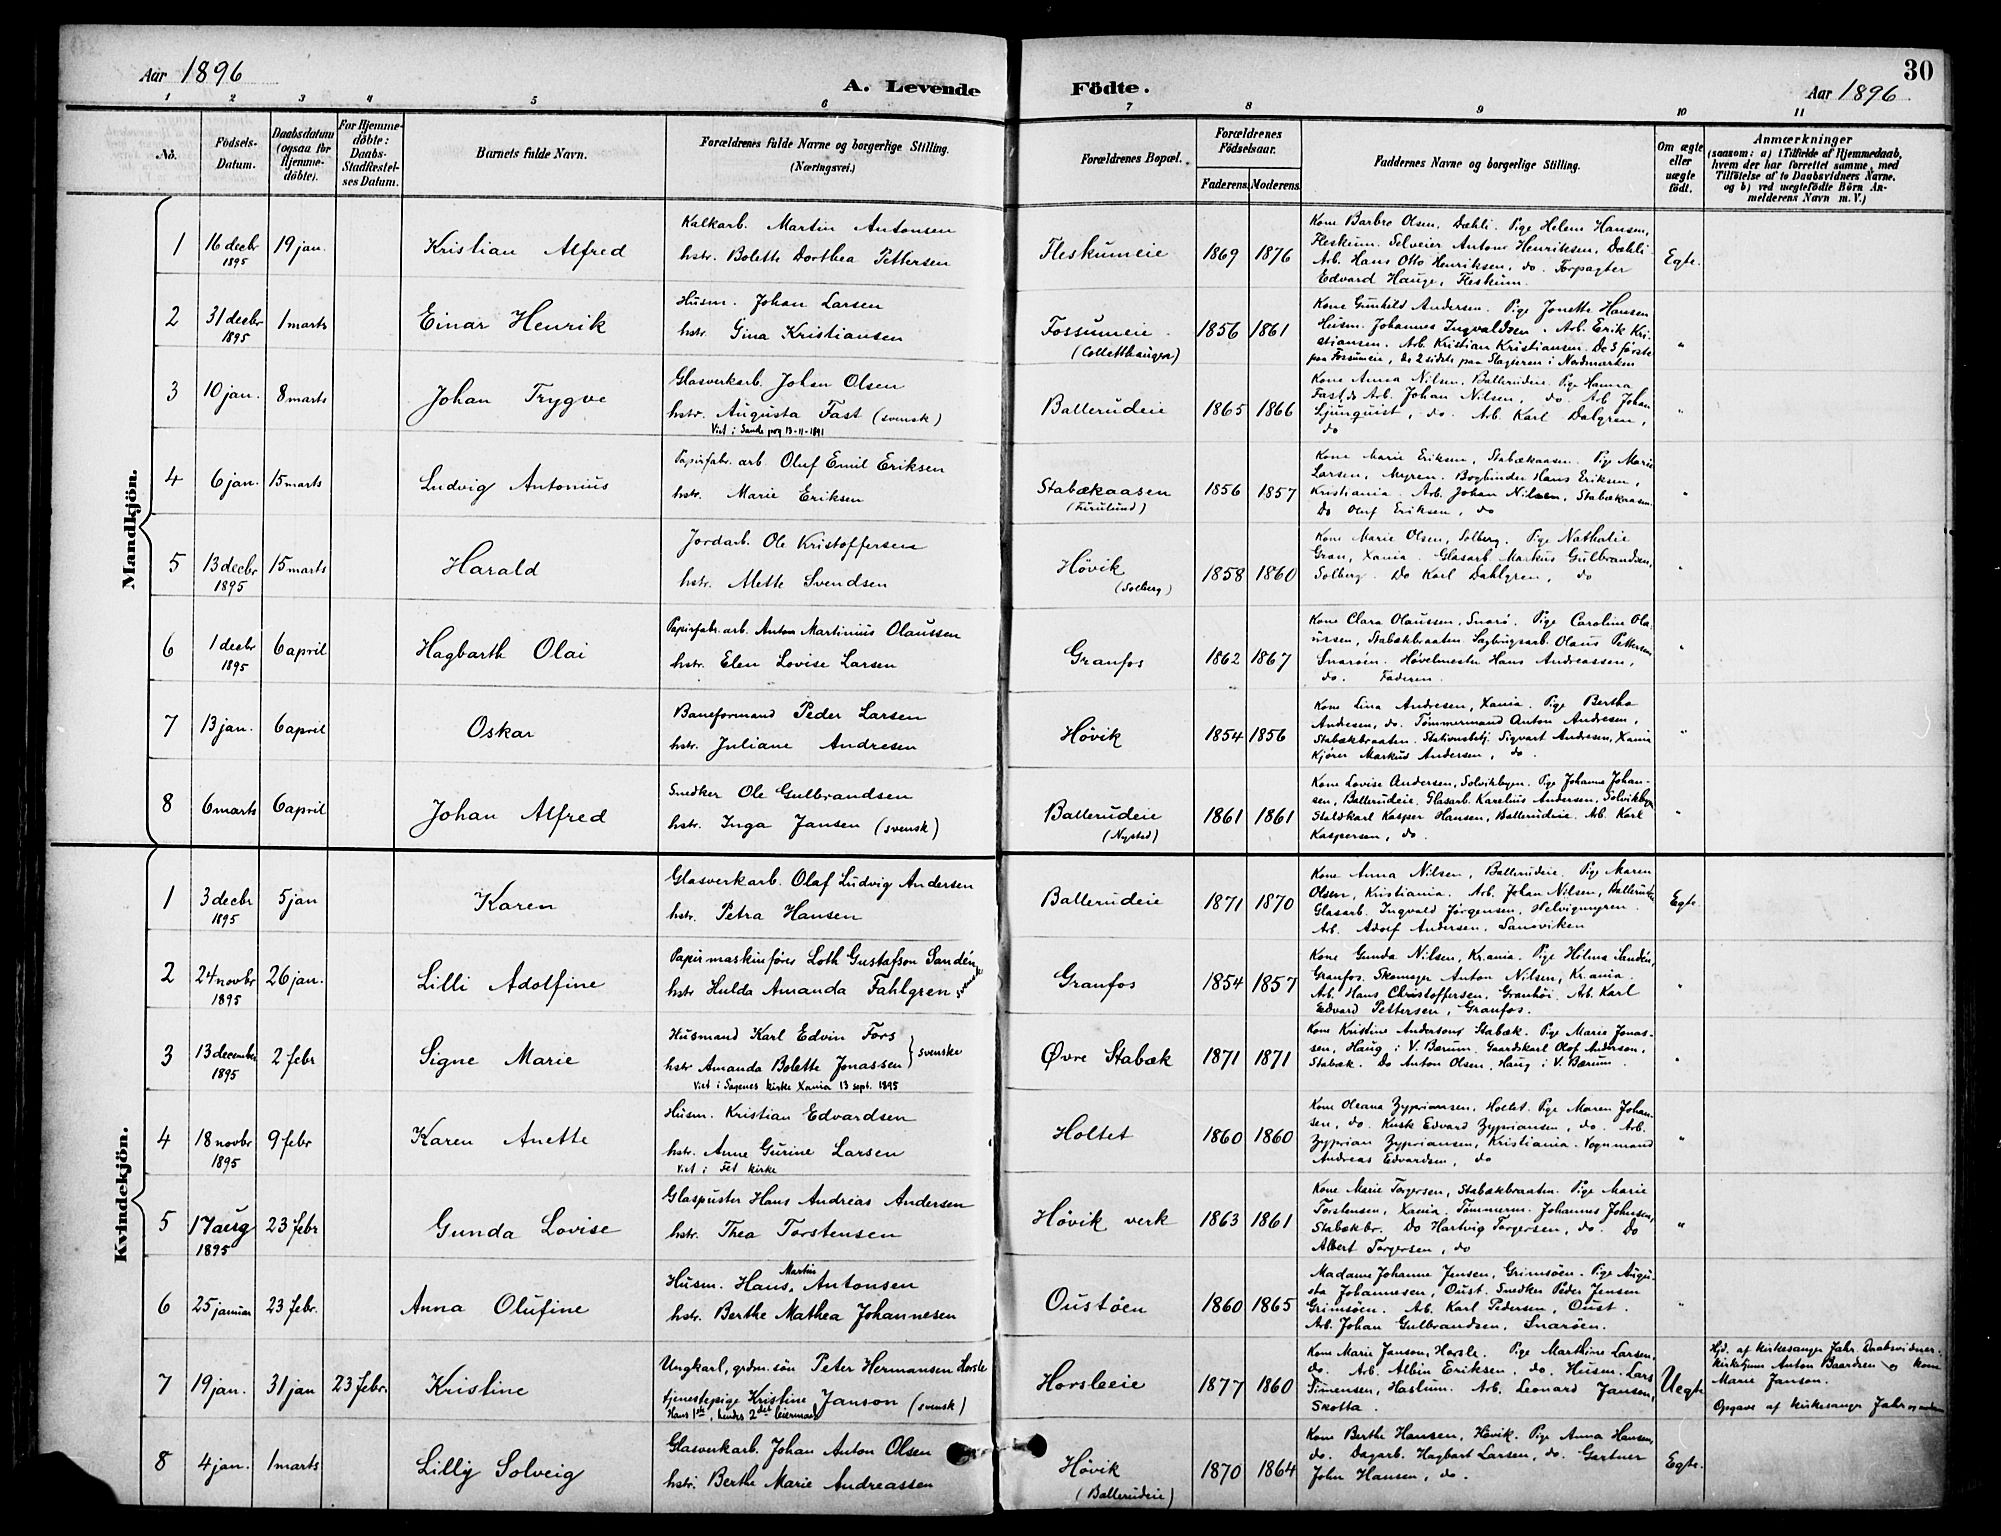 Aar 1896
A. Levende Födte.
30
Aar 1896
1 2 3 4 5 6 7 8 9 10 11
No.
Födsels-Datum.
Daabsdatum (ogsaa for Hjemme-döbte).
For Hjemme-döbte: Daabs-Stadfæstel-ses Datum.
Barnets fulde Navn.
Forældrenes fulde Navne og borgerlige Stilling. (Næringsvei.)
Forældrenes Bopæl.
Forældrenes Födselsaar.
Faderens. Moderens.
Faddernes Navne og borgerlige Stilling.
Om ægte eller uægte födt.
Anmærkninger
(saasom: a) i Tilfælde af Hjemmedaab,
hvem der har forrettet samme, med
Tilföielse af to Daabsvidners Navne.
og b) ved uægtefödte Börn An-
melderens Navn m. V.)
Mandkjön.
1 16 decbr 1895 19 jan. Kristian Alfred
Kalkarb. Martin Antonsen
hstr. Bolette Dorthea Pettersen
Fleskumeie 1869 1876
Kone Barbro Olsen, Dæhli. Pige Helene Hansen,
Fleskum. Selveier Antone Henriksen, Dæhli
Arb. Hans Otto Henriksen, do. Forpagter
Edvard Hauge, Fleskum.
Egte.
2 31 decbr 1895 1 marts Einar Henrik
Husm. Johan Larsen
hstr. Gina Kristiansen
Fossumeie
(Colletthaugen)
1856 1861
Kone Gunhild Andersen. Pige Jonette Hansen
Husm. Johannes Ingvaldsen. Arb. Erik Kri-
stiansen. Arb. Kristian Kristiansen. De 3 første
paa Fossumeie, de 2 sidste paa Slagteren i Nordmarken
"
3 10 jan. 8 marts Johan Trygve
Glasverkarb. Johan Olsen
hstr. Augusta Fast (svensk)
Viet i Sande prg 13-11-1891
Ballerudeie 1865 1866
Kone Anna Nilsen, Ballerudeie. Pige Hanna
Fast, do Arb. Johan Nilsen, do. Arb Johan
Ljunquist, do. Arb. Karl Dalgren,
do
"
4 6 jan. 15 marts Ludvig Antonius
Papirfabr. arb. Oluf Emil Eriksen
hstr. Marie Eriksen
Stabækaasen
(Furulund)
1856 1857
Kone Marie Eriksen, Stabækaasen. Pige Marie
Larsen, Myren. Bogbinder Hans Eriksen,
Kristiania. Arb. Johan Nilsen, Stabækaasen.
Do Oluf Eriksen, do
"
5 13 decbr 1895 15 marts Harald
Jordarb. Ole Kristoffersen
hstr. Mette Svendsen
Høvik
(Solberg)
1858 1860
Kone Marie Olsen, Solberg. Pige Nathalie
Gran, Xania. Glasarb Markus Gulbrandsen,
Solberg. Do Karl Dahlgren, do
"
6 1 decbr 1895 6 april Hagbarth Olai
Papirfabr. arb. Anton Martinius Olaussen
hstr. Elen Lovise Larsen
Granfos 1862 1867
Kone Clara Olaussen, Snarø. Pige Caroline Ola-
ussen, Stabækbraaten. Sagbrugsarb. Olaus Pettersen,
Snarøen. Høvelmester Hans Andreassen,
do. Faderen.
"
7 13 jan. 6 april Oskar
Baneformand Peder Larsen
hstr. Juliane Andresen
Høvik 1854 1856
Kone Lina Andresen, Xania. Pige Bertha
Andesen, do. Tømmermand Anton Andresen,
Stabækbraaten. Stationsbetj. Sigvart Andresen, Xania
Kjører Markus Andersen, do.
"
8 6 marts 6 april Johan Alfred
Snedker Ole Gulbrandsen
hstr. Inga Jansen (svensk)
Ballerudeie
(Nystad)
1861 1861
Kone Lovise Andersen, Solvikbyen. Pige Johanne Johan-
sen, Ballerudeie. Glasarb. Karelius Andersen, Solvikbyen
Staldkarl Kasper Hansen, Ballerudeie. Arb. Karl
Kaspersen, do.
"
Kvindekjön.
1 3 decbr 1895 5 jan Karen
Glasverkarb. Olaf Ludvig Andersen
hstr. Petra Hansen
Ballerudeie 1871 1870
Kone Anna Nilsen, Ballerudeie. Pige Maren
Olsen, Kristiania. Arb. Johan Nilsen, Ballerudeie
Glasarb. Ingvald Jørgensen, Helvigmyren.
Arb. Adolf Andersen, Sandviken
Egte.
2 24 novbr 1895 26 jan. Lilli Adolfine
Papirmaskinfører Loth Gustafson Sandén
hstr Hulda Amanda Fahlgren svenske
Granfos 1854 1857
Kone Gunda Nilsen, Kr.ania. Pige Hilma Sandén,
Granfos. Skomager Anton Nilsen, Kr.ania.
Arb. Hans Christoffersen, Granhøi. Arb. Karl
Edvard Pettersen, Granfos.
"
3 13 december 1895 2 febr Signe Marie
Husmand Karl Edvin Fors
hstr Amanda Bolette Jonassen } svenske
Viet i Sagenes kirke Xania 13 sept. 1895
Øvre Stabæk 1871 1871
Kone Kristine Anderson, Stabæk. Pige Marie Jonas-
sen, Haug i V. Bærum. Gaardskarl Olof Anderson,
Stabæk. Do Anton Olsen, Haug i V. Bærum.
"
4 18 novbr 1895 9 febr Karen Anette
Husm. Kristian Edvardsen
hstr. Anne Gurine Larsen
Viet i Fet kirke
Holtet 1860 1860
Kone Oleana Zypriansen, Holtet. Pige Maren Johan-
sen, do. Kusk Edvard Zypriansen, do. Arb.
Zyprian Zypriansen, Kristiania. Vognmand
Andreas Edvardsen, do
"
5 17 aug 1895 23 febr Gunda Lovise
Glaspuster Hans Andreas Andersen
hstr. Thea Torstensen
Høvik verk 1863 1861
Kone Marie Torgersen, Stabækbraaten. Pige Marie
Torstensen, Xania. Tømmerm. Johannes Johnsen,
Stabækbr. Do Hartvig Torgersen, do. Do
Albert Torgersen, do
"
6 25 januar 23 febr. Anna Olufine
Husm. Hans Martin Antonsen
hstr. Berthe Mathea Johannesen
Oustøen 1860 1865
Madame Johanne Jensen, Grimsøen. Pige Augu-
sta Johannesen, Oust. Snedker Peder Jensen
Grimsøen. Arb. Karl Pedersen, Oust.
Arb. Johan Gulbrandsen, Snarøen.
"
7 19 jan. 31 jan 23 febr. Kristine
Ungkarl, grdm. søn Peter Hermansen Horsle
tjenestepige Kristine Janson (svensk)
Hans 1ste, hendes 2det leiermaal
Horsleeie 1877 1860
Kone Marie Janson, Horsle. Pige Marthine Larsen,
do. Arb. Albin Eriksen, do. Husm. Lars
Simensen, Haslum. Arb. Leonard Janson,
Skotta.
Uegte
Hjd. af kirkesanger Jahr. Daabsvidner:
kirketjener Anton Baardsen og kone
Marie Janson.
Opgave af kirkesanger Jahr og moderen
8 4 jan. 1 marts Lilly Solveig
Glasverkarb. Johan Anton Olsen
hstr. Berthe Marie Andreassen
Høvik
(Ballerudeie)
1870 1864
Kone Berthe Hansen, Høvik. Pige Anna Hansen,
do. Dagarb. Hagbart Larsen, do. Gartner
John Hansen, do.
Egte.